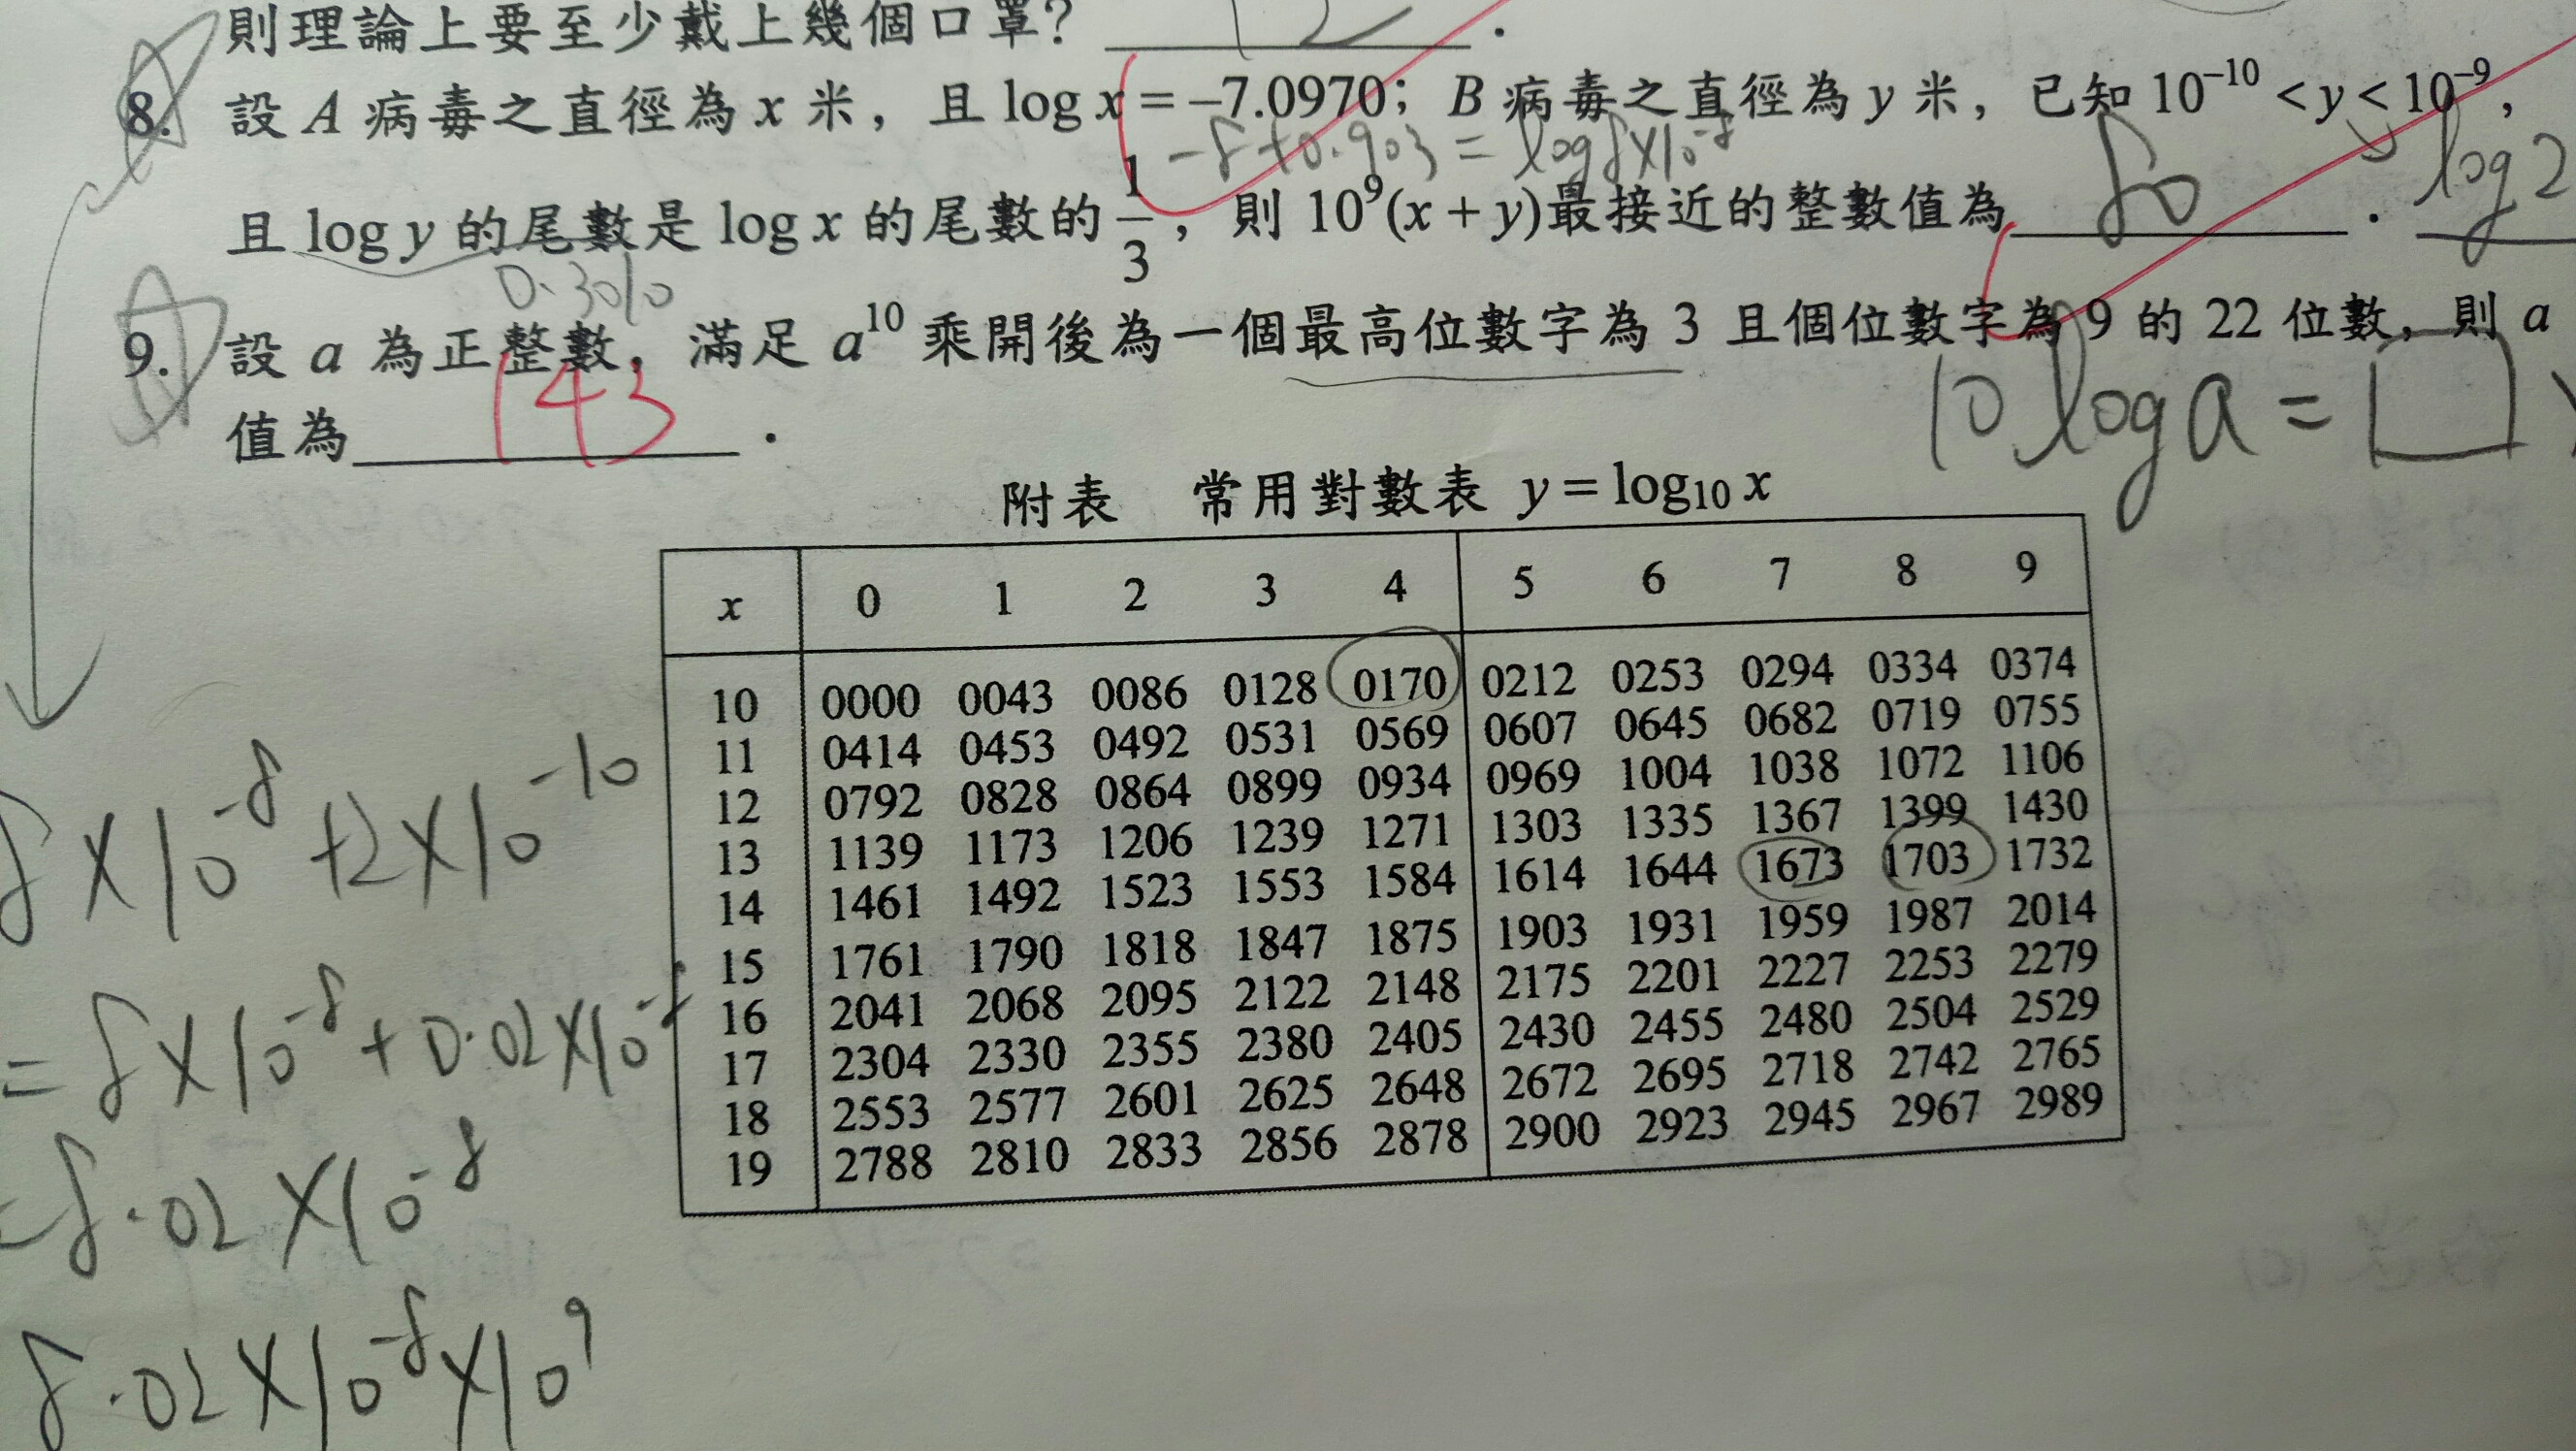 則理論上要至少戴上幾個口罩? 12 .
8. 設 A 病毒之直徑為 x 米，且 log x = −7.0970；B 病毒之直徑為 y 米，已知 10⁻¹⁰ < y < 10⁻⁹，
-8+0.903 = log8×10⁻⁸
且 log y 的尾數是 log x 的尾數的 1/3，則 10⁹(x + y)最接近的整數值為 80 . log2
0.3010
9. 設 a 為正整數，滿足 a¹⁰ 乘開後為一個最高位數字為 3 且個位數字為 9 的 22 位數，則 a
值為 143 .
10 log a =
附表 常用對數表 y = log₁₀ x
x 0 1 2 3 4 5 6 7 8 9
10 0000 0043 0086 0128 0170 0212 0253 0294 0334 0374
11 0414 0453 0492 0531 0569 0607 0645 0682 0719 0755
12 0792 0828 0864 0899 0934 0969 1004 1038 1072 1106
13 1139 1173 1206 1239 1271 1303 1335 1367 1399 1430
14 1461 1492 1523 1553 1584 1614 1644 1673 1703 1732
15 1761 1790 1818 1847 1875 1903 1931 1959 1987 2014
16 2041 2068 2095 2122 2148 2175 2201 2227 2253 2279
17 2304 2330 2355 2380 2405 2430 2455 2480 2504 2529
18 2553 2577 2601 2625 2648 2672 2695 2718 2742 2765
19 2788 2810 2833 2856 2878 2900 2923 2945 2967 2989
8×10⁻⁸+2×10⁻¹⁰
=8×10⁻⁸+0.02×10⁻⁸
=8.02×10⁻⁸
8.02×10⁻⁸×10⁹